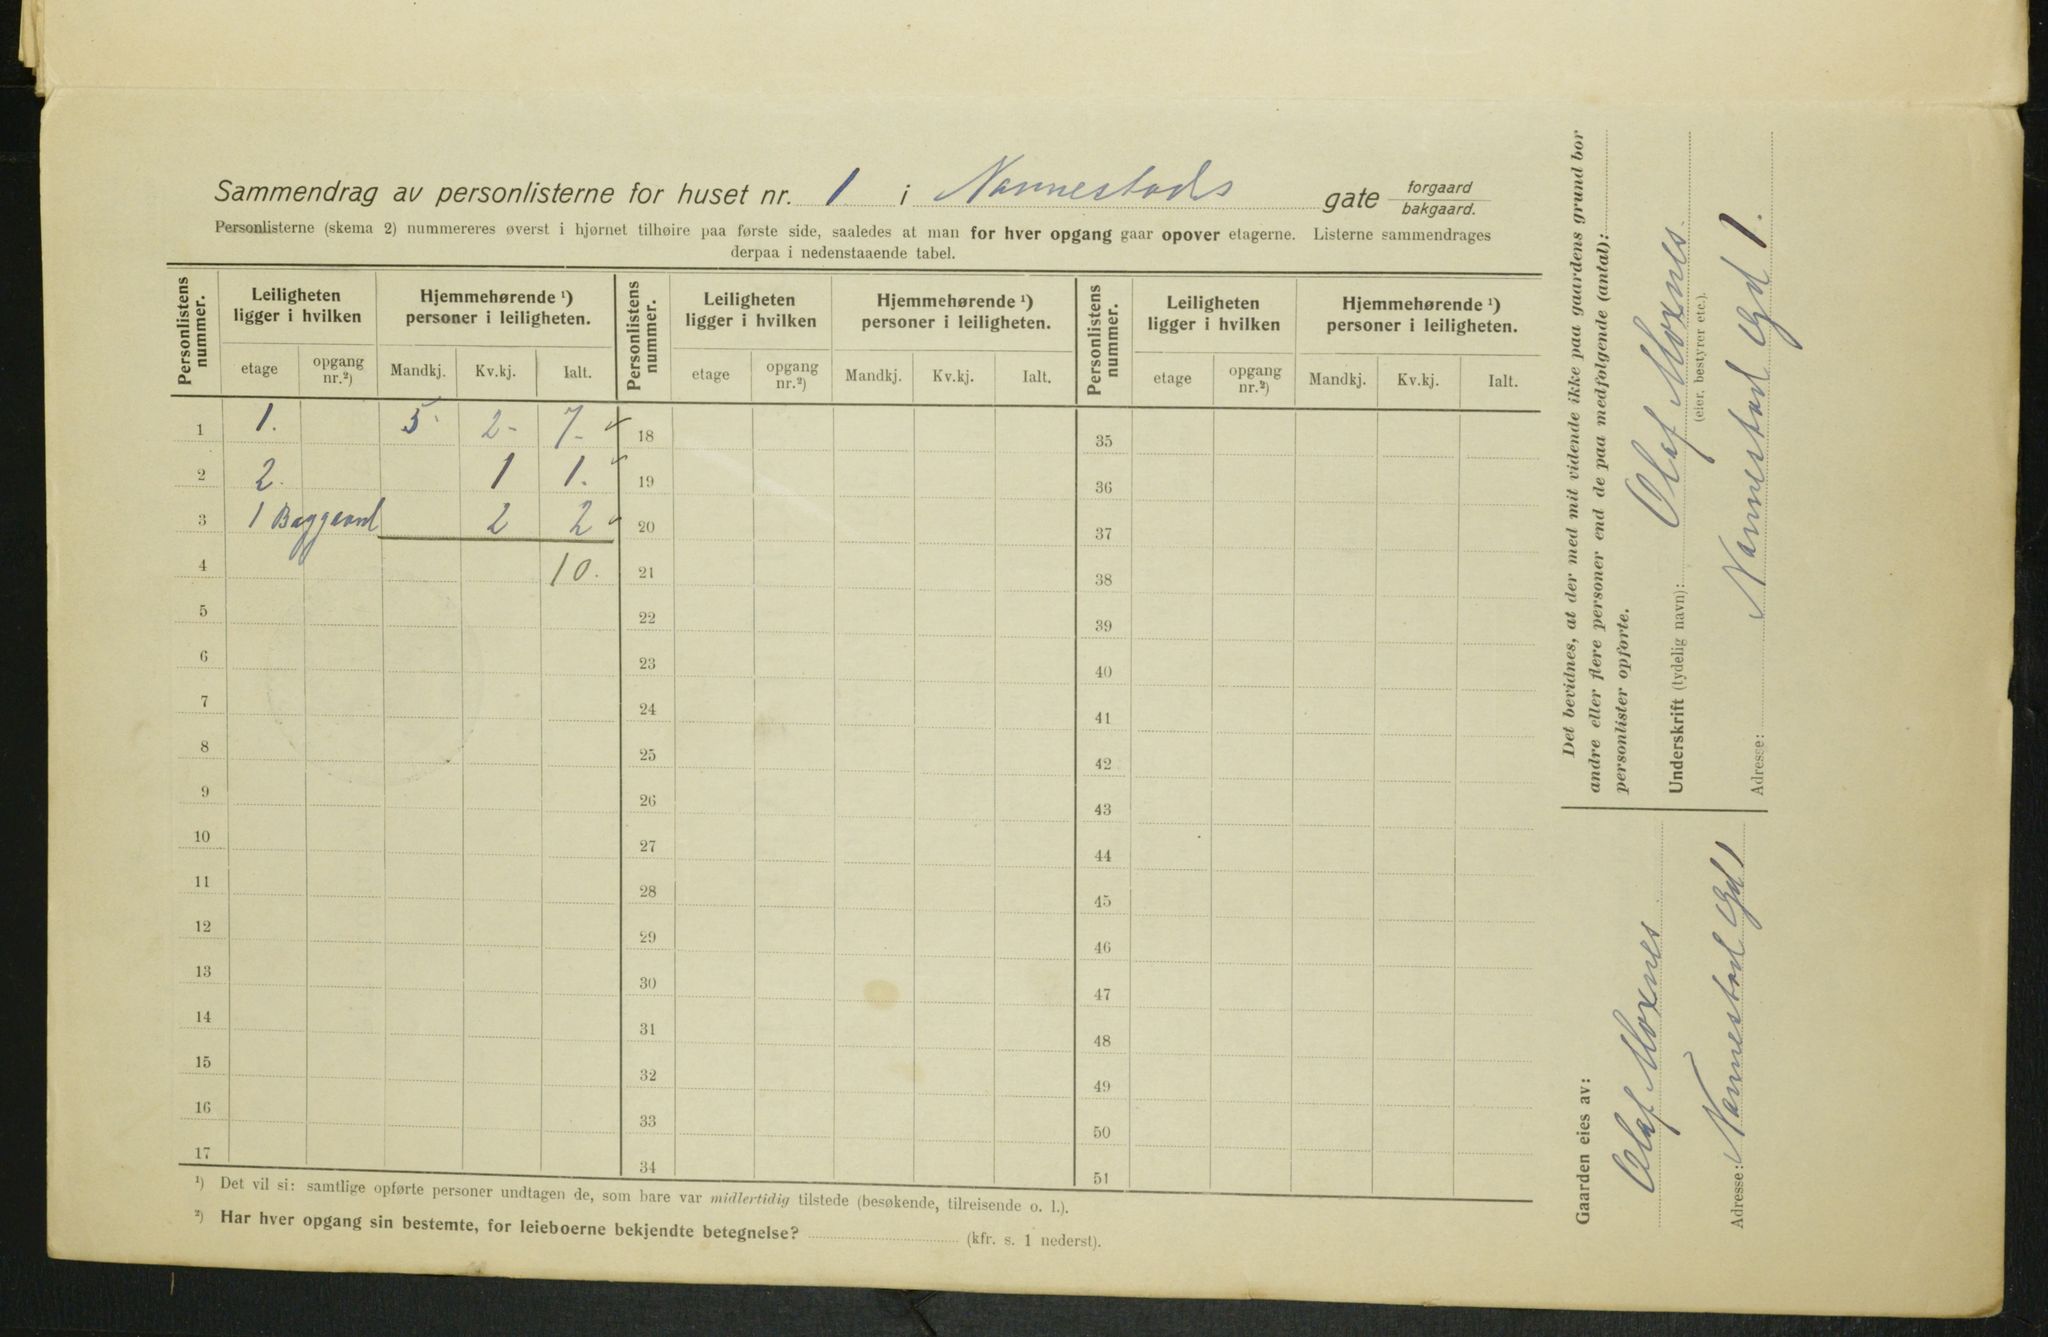 Sammendrag av personlisterne for huset nr. 1 i Nannestads gate forgaard bakgaard.
Personlisterne (skema 2) nummereres øverst i hjørnet tilhøire paa første side, saaledes at man for hver opgang gaar opover etagerne. Listerne sammendrages
derpaa i nedenstaaende tabel.
Personlistens nummer. Leiligheten ligger i hvilken Hjemmehørende ¹) personer i leiligheten. Personlistens nummer. Leiligheten ligger i hvilken Hjemmehørende ¹) personer i leiligheten. Personlistens nummer. Leiligheten ligger i hvilken Hjemmehørende ¹) personer i leiligheten.
etage opgang nr.²) Mandkj. Kv.kj. Ialt. etage opgang nr.²) Mandkj. Kv.kj. Ialt. etage opgang nr.²) Mandkj. Kv.kj. Ialt.
1 1. 5- 2- 7- 18 35
2 2. 1 1. 19 36
3 1 Baggaard 2 2 20 37
4 10. 21 38
5 22 39
6 23 40
7 24 41
8 25 42
9 26 43
10 27 44
11 28 45
12 29 46
13 30 47
14 31 48
15 32 49
16 33 50
17 34 51
¹) Det vil si: samtlige opførte personer undtagen de, som bare var midlertidig tilstede (besøkende, tilreisende o. l.).
²) Har hver opgang sin bestemte, for leieboerne bekjendte betegnelse? (kfr. s. 1 nederst).
Det bevidnes, at der med mit vidende ikke paa gaardens grund bor
andre eller flere personer end de paa medfølgende (antal):
personlister opførte.
Underskrift (tydelig navn): Olaf Moxnes.
(eier, bestyrer etc.).
Adresse: Nannestad Gd 1.
Gaarden eies av:
Olaf Moxnes
Adresse: Nannestad Gd 1